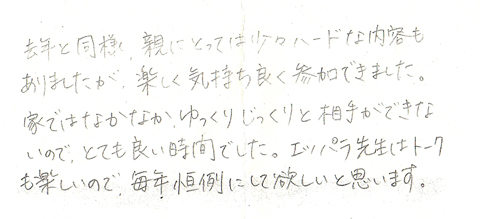 去年と同様、親にとっては少々ハードな内容も
ありましたが、楽しく気持ち良く参加できました。
家ではなかなか、ゆっくりじっくりと相手ができな
いので、とても良い時間でした。エッパラ先生はトーク
も楽しいので、毎年恒例にして欲しいと思います。